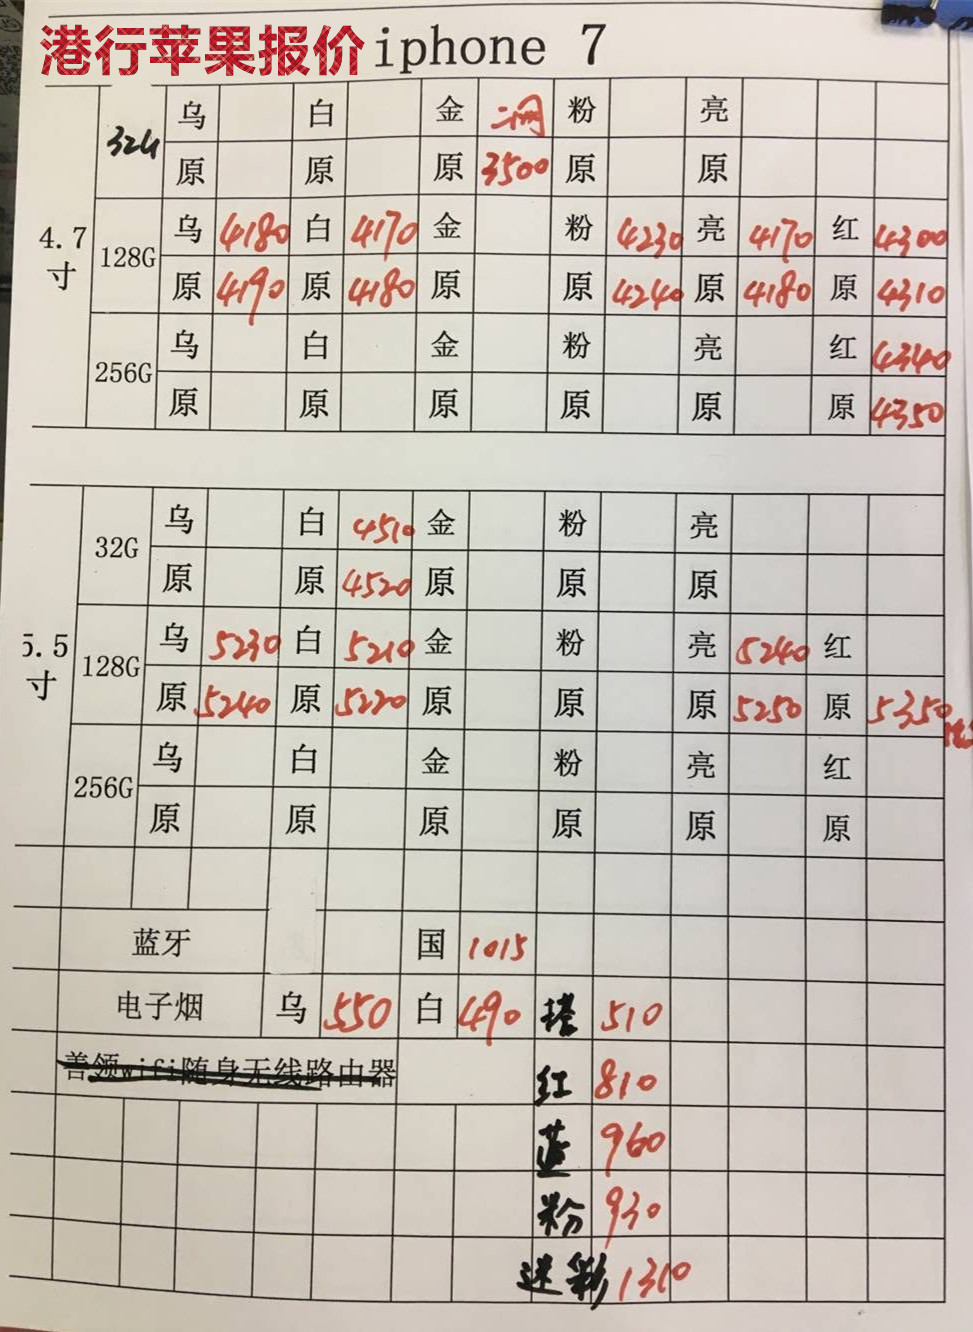 港行苹果报价 iphone 7
32G 乌 白 金 粉 亮
原 原 原 3500 原 原
4.7寸 128G 乌 4180 白 4170 金 粉 4230 亮 4170 红 4300
原 4190 原 4180 原 原 4240 原 4180 原 4310
256G 乌 白 金 粉 亮 红 4340
原 原 原 原 原 原 4350
32G 乌 白 4510 金 粉 亮
原 原 4520 原 原 原
5.5寸 128G 乌 5230 白 5210 金 粉 亮 5240 红
原 5240 原 5220 原 原 原 5250 原 5350
256G 乌 白 金 粉 亮 红
原 原 原 原 原 原
蓝牙 国 1015
电子烟 乌 550 白 490 510
善领wifi随身无线路由器
红 810
蓝 960
粉 930
迷彩 1310